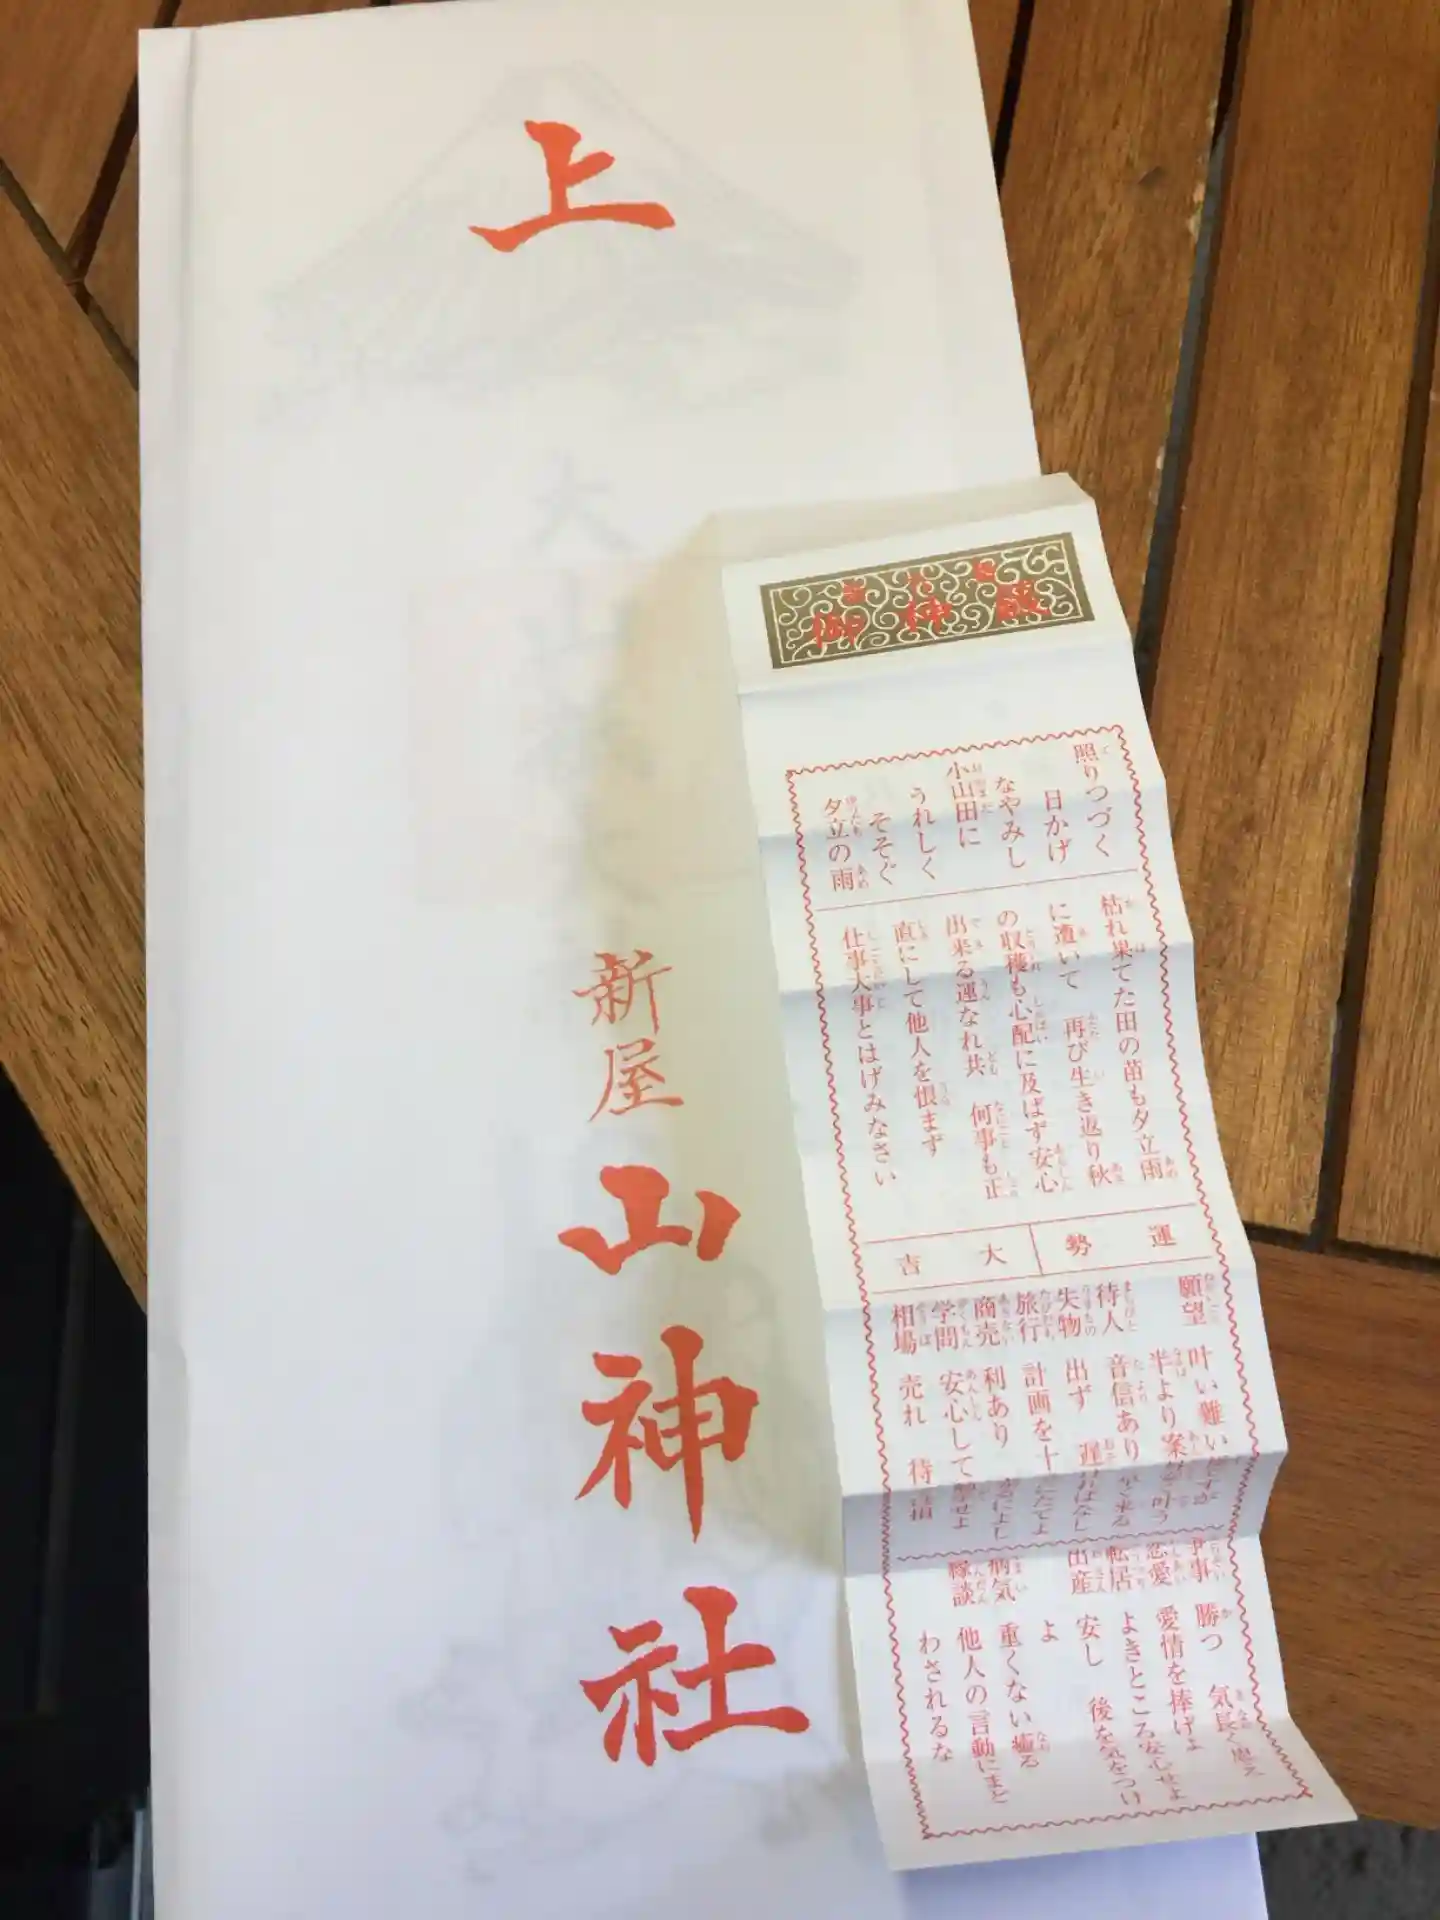 上
新屋
山神社
照りつづく
日かげ
なやみし
小山田に
うれしく
そそぐ
夕立の雨
枯れ果てた田の苗も夕立雨
に遭いて 再び生き返り秋
の収穫も心配に及ばず安心
出来る運なれ共 何事も正
直にして他人を恨まず
仕事大事とはげみなさい
運勢
大吉
願望 叶い難い
半より案
待人 音信あり
失物 出ず 遅
旅行 計画を十
商売 利あり
学問 安心して
相場 売れ 待
争事 勝つ 気長く思え
恋愛 愛情を捧げよ
転居 よきところ安心せよ
出産 安し 後を気をつけ
よ
病気 重くない 癒る
縁談 他人の言動にまど
わされるな